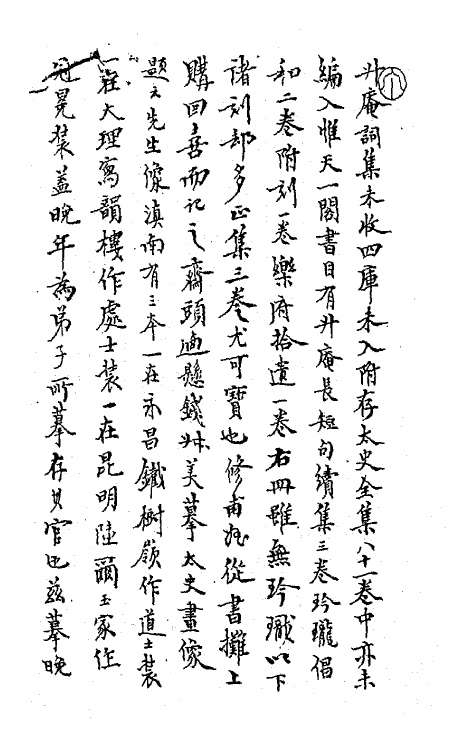 升庵詞集未收四庫未入附存太史全集八十一卷中亦未
編入惟天一閣書目有升庵長短句續集三卷玲瓏倡
和二卷附刻一卷樂府拾遺一卷右冊雖無玲瓏以下
諸刻却多正集三卷尤可寶也修甫从從書攤上
購回喜而記之齋頭迺懸錢叔美摹太史畫像
題云先生像滇南有三本一在永昌鐵樹嶺作道士裝
一在大理寫韻樓作處士裝一在昆明陸爾玉家作
冠冕裝蓋晚年為弟子所摹存其官也茲摹晚